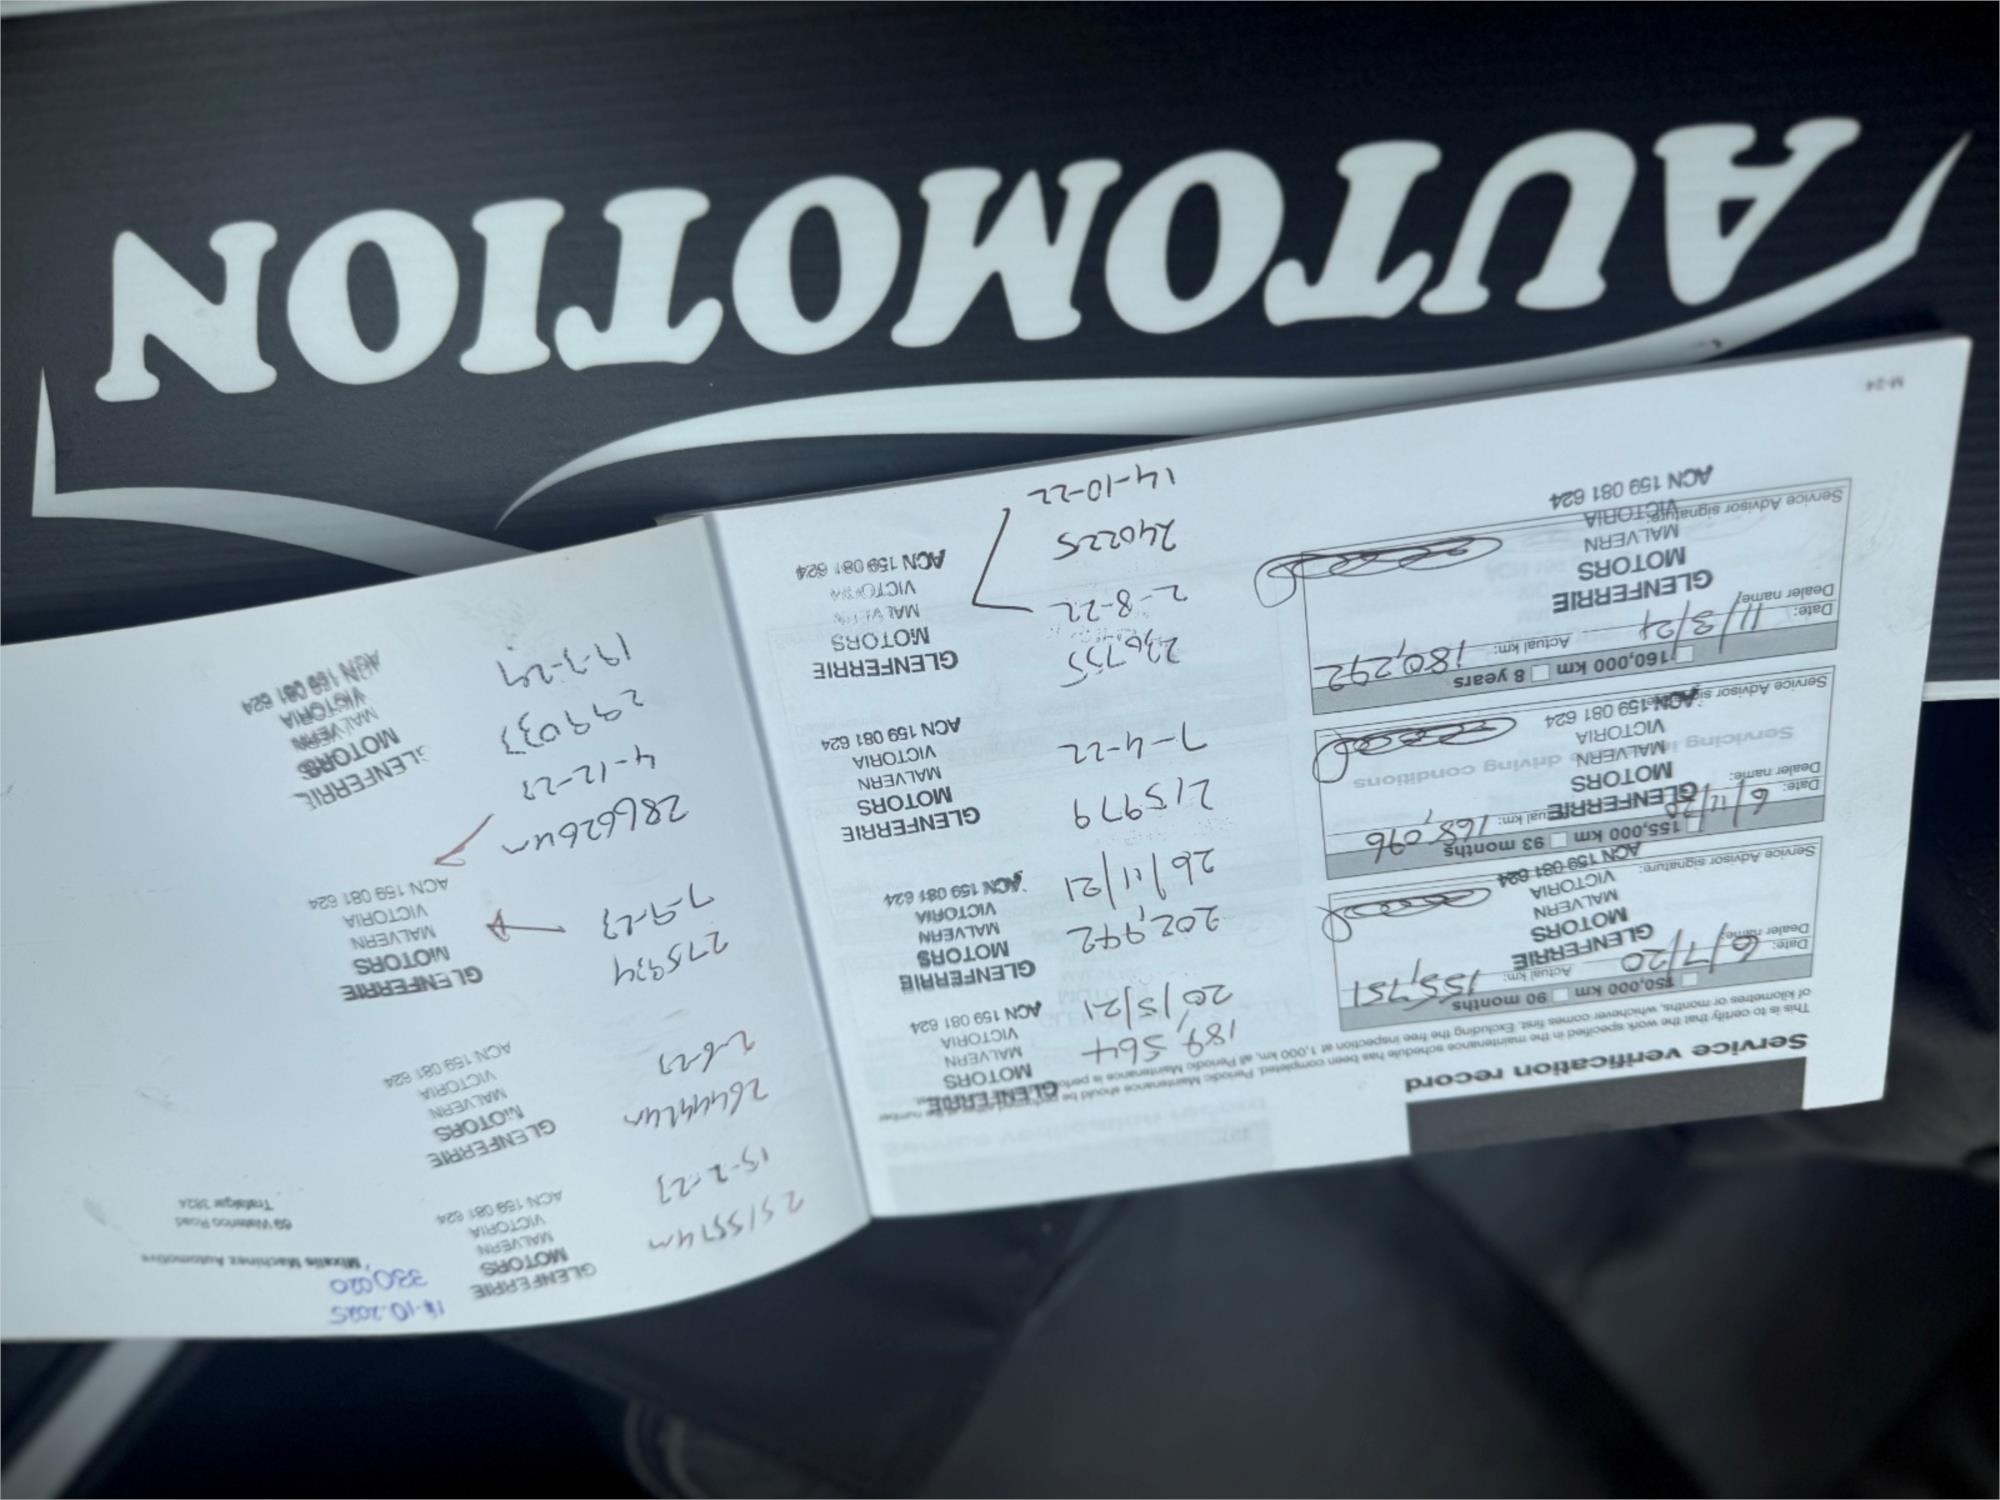 Service verification record
This is to certify that the work specified in the maintenance schedule has been completed. Periodic Maintenance should be performed at the number
of kilometres or months, whichever comes first. Excluding the free inspection at 1,000 km, all Periodic Maintenance is
150,000 km 90 months Actual km: 155,751
Date: 6/7/20
Dealer name:
GLENFERRIE
MOTORS
MALVERN
VICTORIA
ACN 159 081 624
Service Advisor signature:
155,000 km 93 months Actual km: 168,096
Date: 6/11/20
Dealer name:
GLENFERRIE
MOTORS
MALVERN
VICTORIA
ACN 159 081 624
Service Advisor signature:
160,000 km 8 years
Actual km: 180,292
Date: 11/3/21
Dealer name:
GLENFERRIE
MOTORS
MALVERN
VICTORIA
ACN 159 081 624
Service Advisor signature:
M-24
189,564
20/5/21
GLENFERRIE
MOTORS
MALVERN
VICTORIA
ACN 159 081 624
202,942
26/11/21
GLENFERRIE
MOTORS
MALVERN
VICTORIA
ACN 159 081 624
215979
7-4-22
GLENFERRIE
MOTORS
MALVERN
VICTORIA
ACN 159 081 624
2-8-22
240225
14-10-22
GLENFERRIE
MOTORS
MALVERN
VICTORIA
ACN 159 081 624
251557km
15-2-23
GLENFERRIE
MOTORS
MALVERN
VICTORIA
ACN 159 081 624
264442km
2-6-23
GLENFERRIE
MOTORS
MALVERN
VICTORIA
ACN 159 081 624
275934
7-9-23
GLENFERRIE
MOTORS
MALVERN
VICTORIA
ACN 159 081 624
286626km
4-12-23
299033
GLENFERRIE
MOTORS
MALVERN
VICTORIA
ACN 159 081 624
14.10.2025
330020
Mixalis Machinez Automotive
69 Waterloo Road
Trafalgar 3824
AUTOMOTION